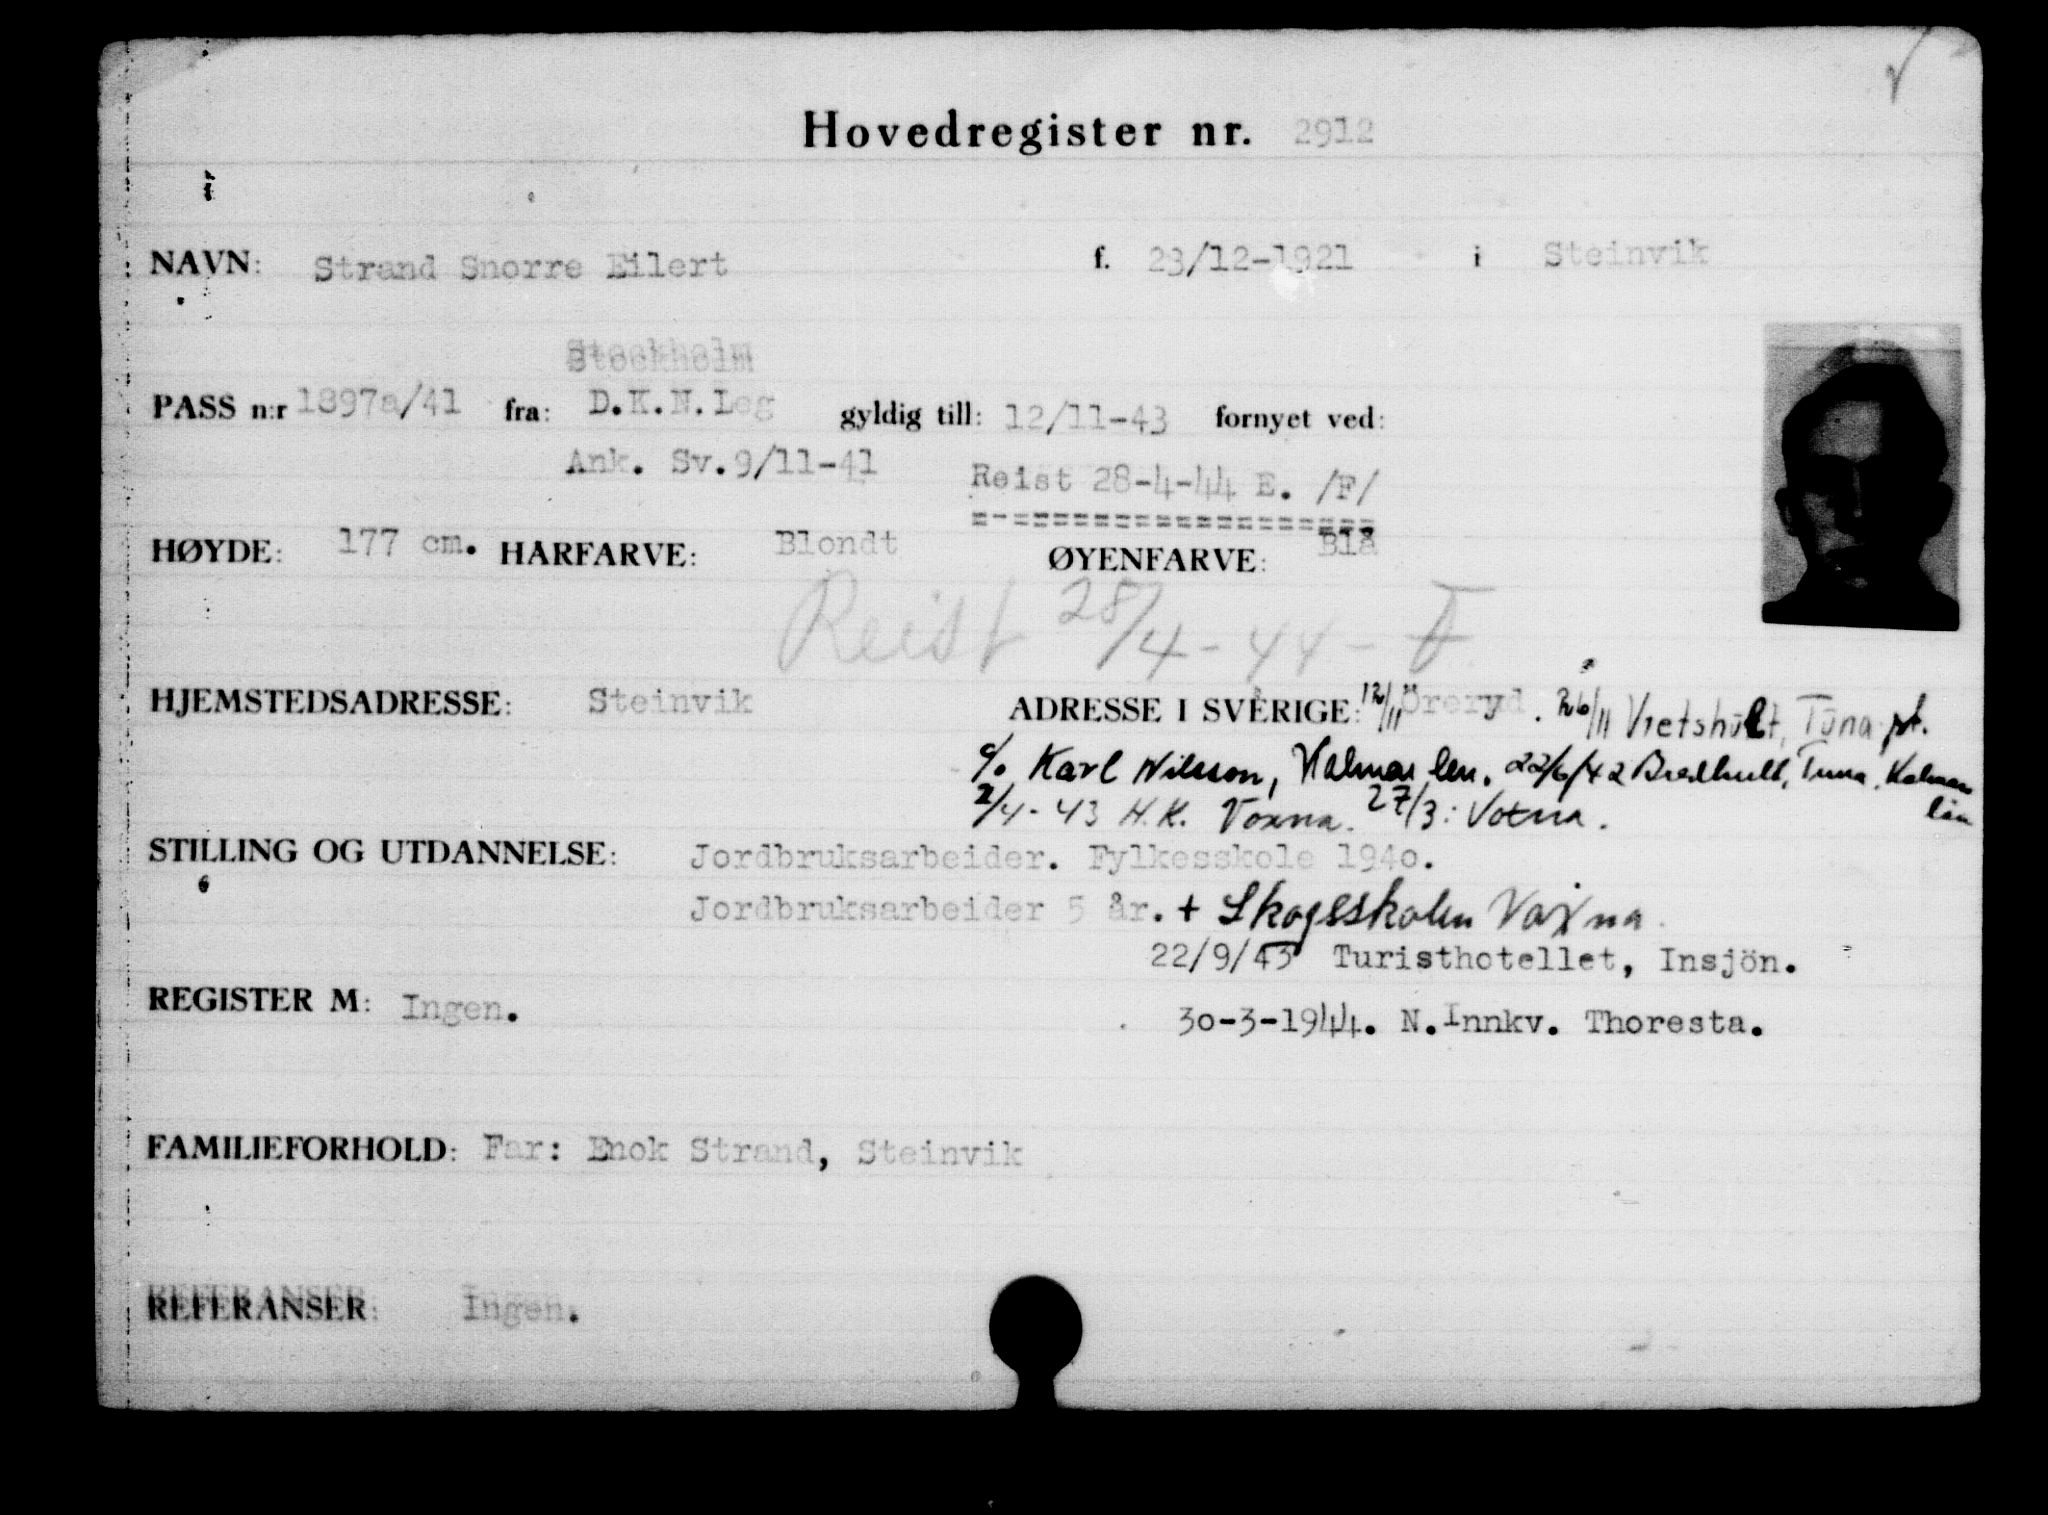 Hovedregister nr. 2912
NAVN: Strand Snorre Eilert f. 23/12-1921 i Steinvik
Stockholm
PASS n:r 1897a/41 fra: D.K.N.Leg gyldig till: 12/11-43 fornyet ved:
Ank. Sv.9/11-41 Reist 28-4-44 E. /F/
HØYDE: 177 cm. HÅRFARVE: Blondt ØYENFARVE: Blå
Reist 28/4-44-F
HJEMSTEDSADRESSE: Steinvik ADRESSE I SVERIGE: 12/11 Öreryd. 26/11 Vretshult, Tuna pt.
c/o Karl Nilsson, Kalmar len. 22/6/42 Bredhult, Tuna. Kalmar
län
2/4-43 H.K. Voxna. 27/3: Voxna.
STILLING OG UTDANNELSE: Jordbruksarbeider. Fylkesskole 1940.
Jordbruksarbeider 5 år. + Skogsskolen Voxna.
22/9/43 Turisthotellet, Insjön.
REGISTER M: Ingen.
30-3-1944. N.Innkv. Thoresta.
FAMILIEFORHOLD: Far: Enok Strand, Steinvik
REFERANSER: Ingen.